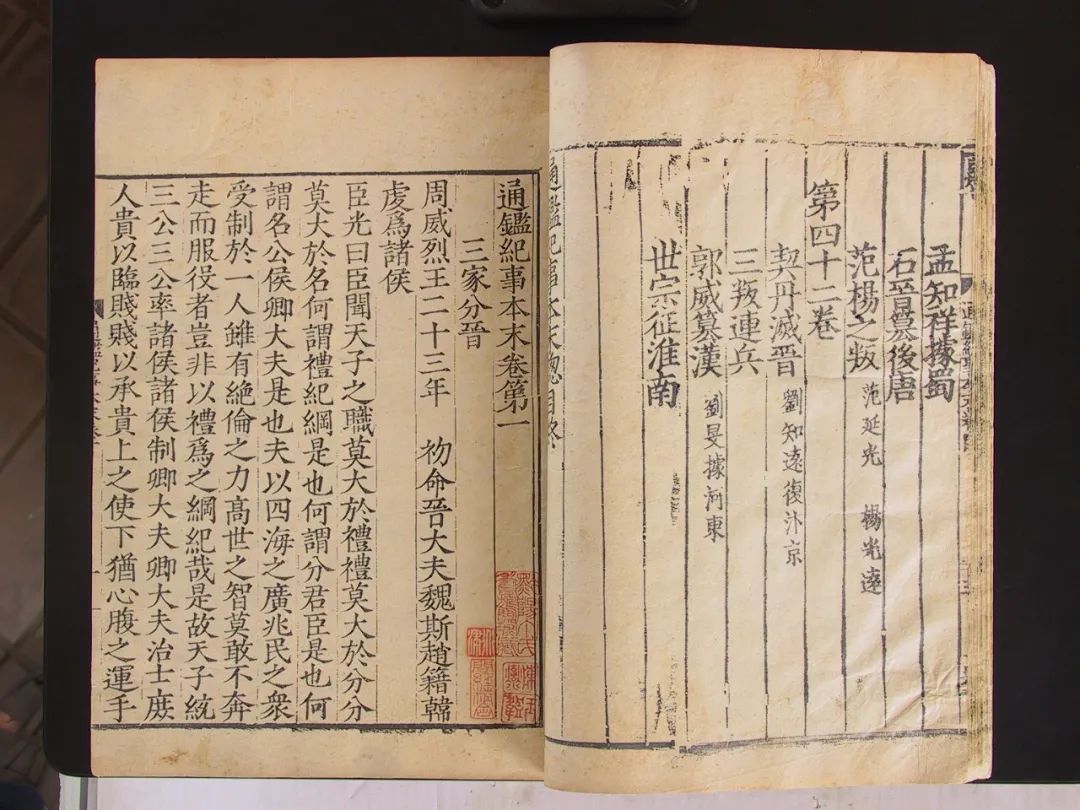 孟知祥據蜀
石晉篡後唐
范楊之叛 范延光 楊光遠
第四十二卷
契丹滅晉 劉知遠復汴京
三叛連兵
郭威篡漢 劉旻據河東
世宗征淮南
通鑑紀事本末總目終
通鑑紀事本末卷第一
三家分晉
周威烈王二十三年 初命晉大夫魏斯趙籍韓
虔爲諸侯
臣光曰臣聞天子之職莫大於禮禮莫大於分分
莫大於名何謂禮紀綱是也何謂分君臣是也何
謂名公侯卿大夫是也夫以四海之廣兆民之衆
受制於一人雖有絶倫之力高世之智莫敢不奔
走而服役者豈非以禮爲之綱紀哉是故天子統
三公三公率諸侯諸侯制卿大夫卿大夫治士庶
人貴以臨賤賤以承貴上之使下猶心腹之運手